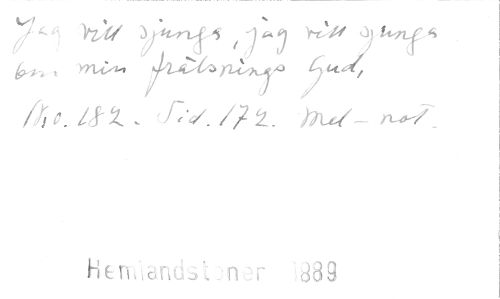 Jag vill sjunga, jag vill sjunga
om min frälsnings Gud,
No. 182. Sid. 172. Mel-not.
Hemlandstoner 1889